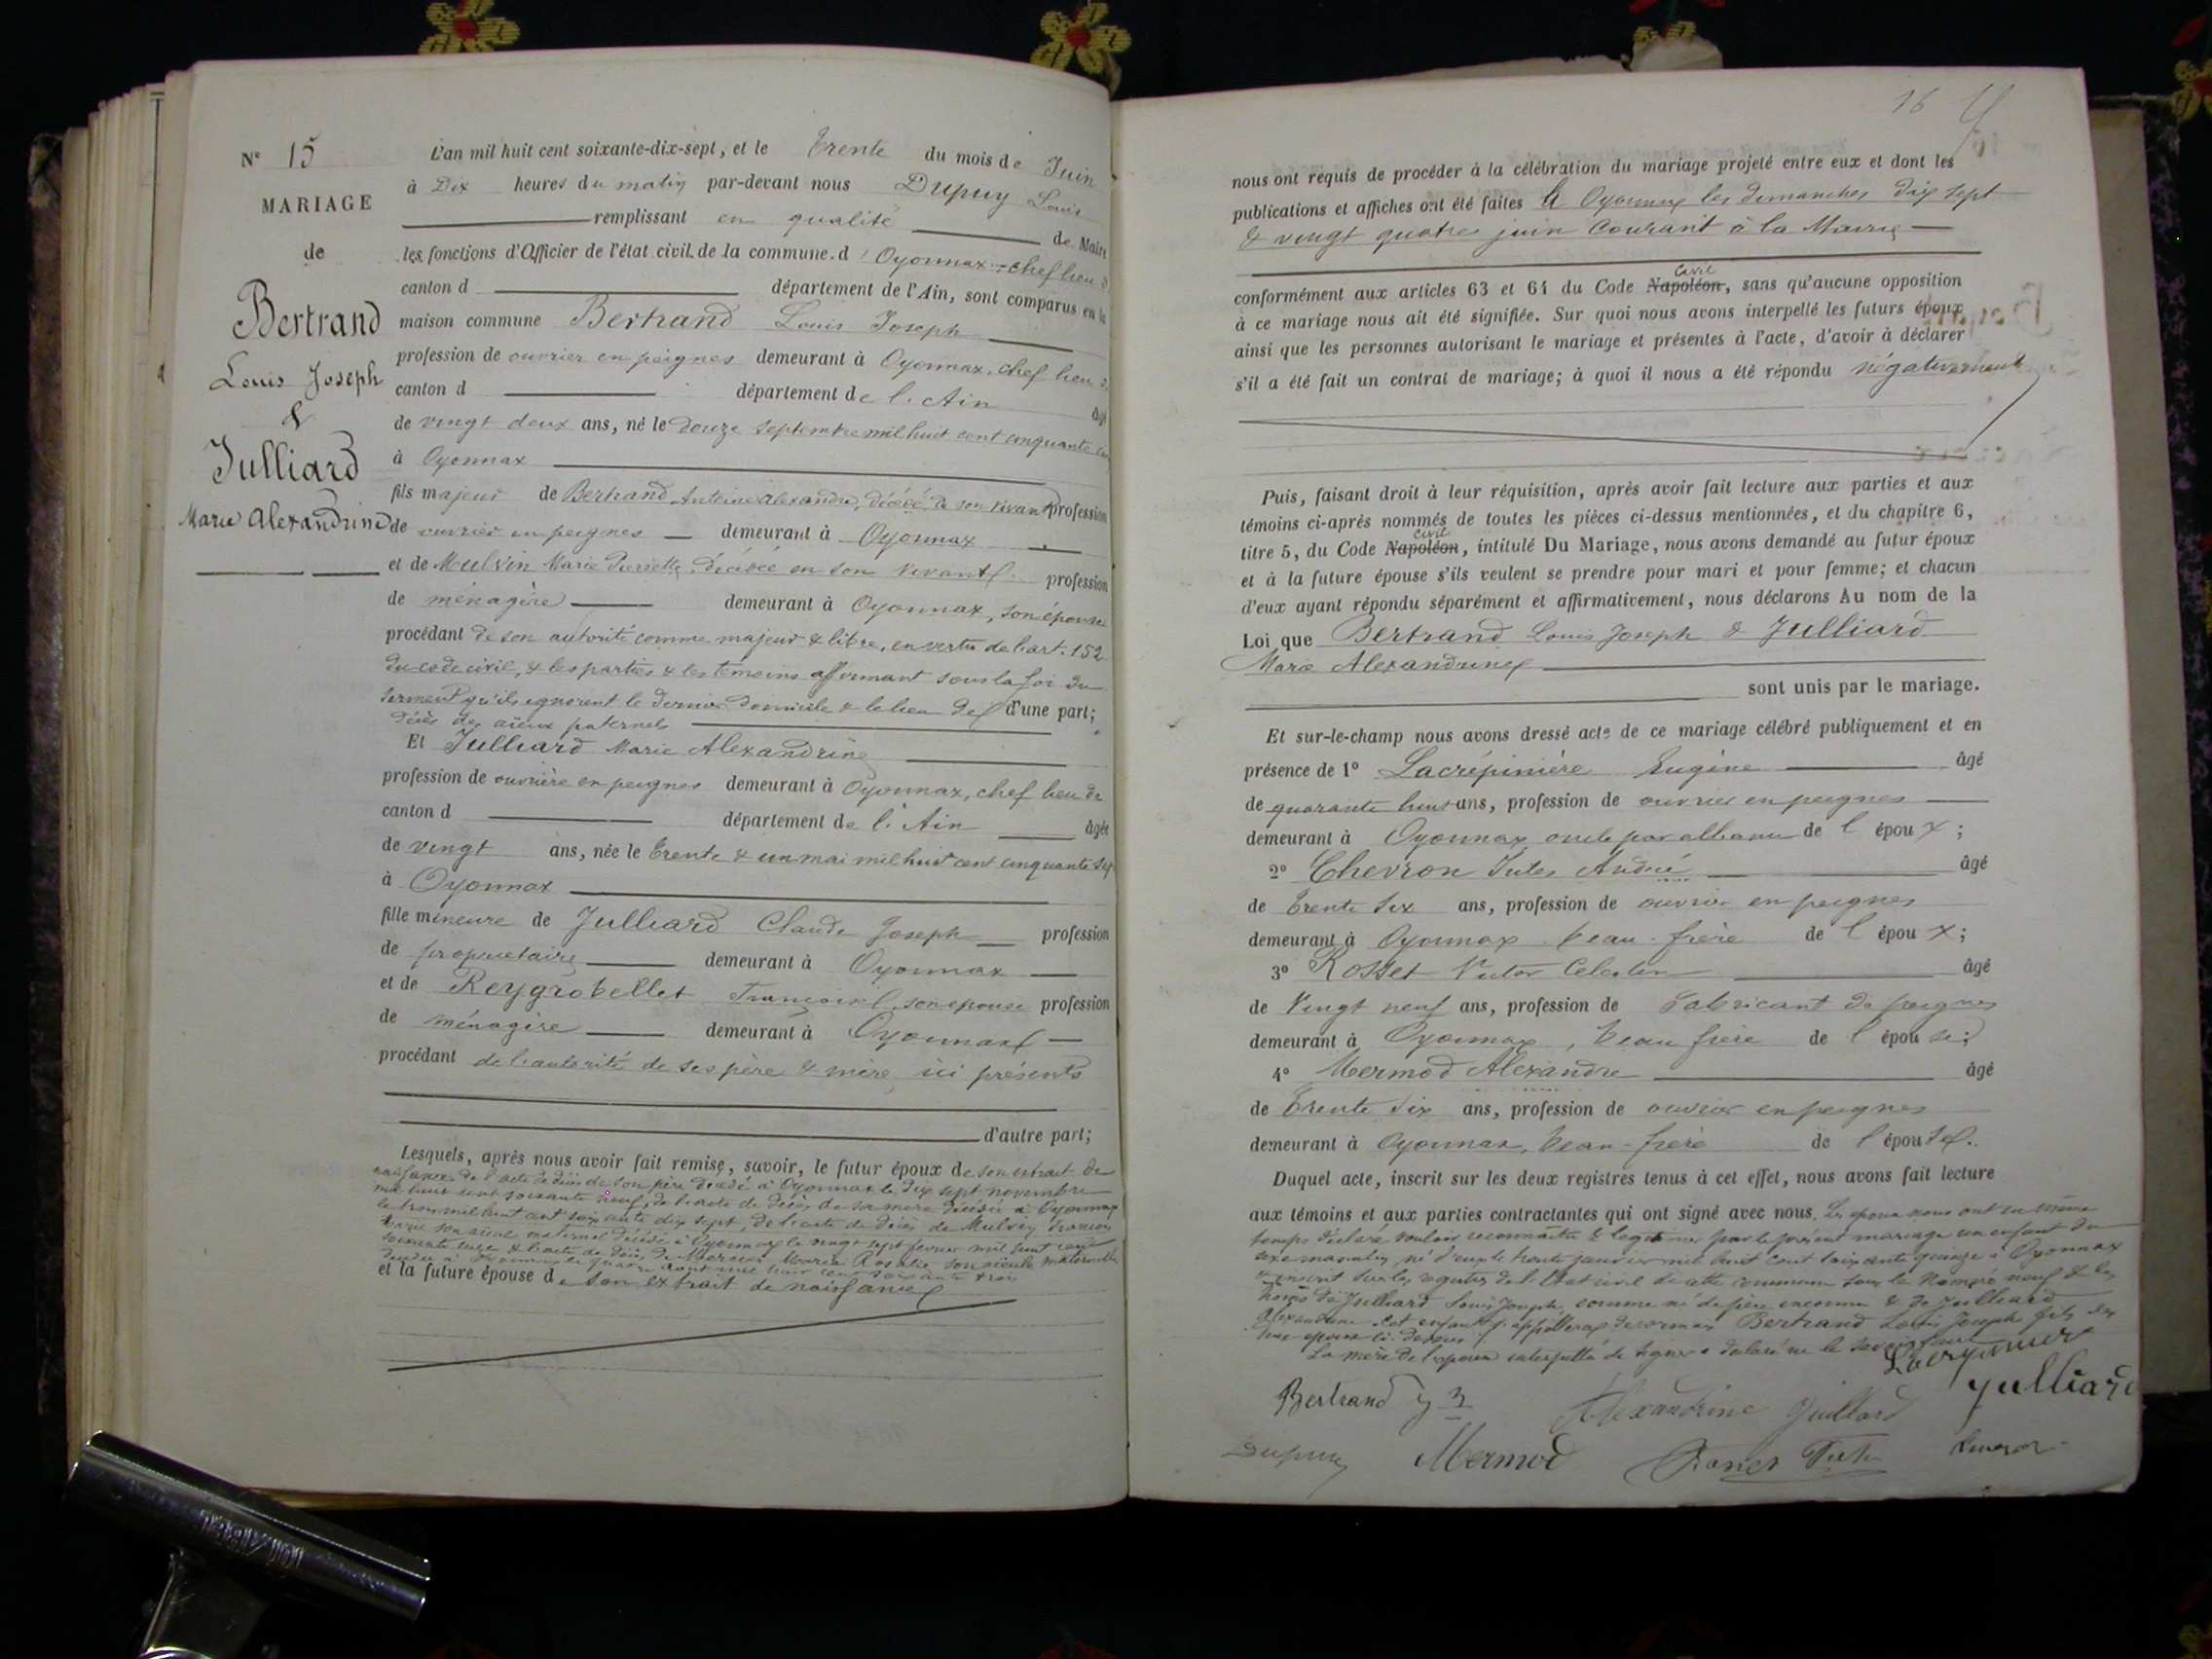 N° 15
MARIAGE
de
Bertrand
Louis Joseph
&
Julliard
Marie Alexandrine
L'an mil huit cent soixante-dix-sept, et le Trente du mois de Juin
à Dix heures du matin par-devant nous Dupuy Louis
remplissant en qualité de Maire
les fonctions d'Officier de l'état civil de la commune d'Oyonnax, chef lieu d
canton d département de l'Ain, sont comparus en la
maison commune Bertrand Louis Joseph
profession de ouvrier en peignes demeurant à Oyonnax, chef lieu d
canton d département de l'Ain âgé
de vingt deux ans, né le douze septembre mil huit cent cinquante
à Oyonnax
fils majeur de Bertrand Antoine Alexandre, décédé de son vivant profession
de ouvrier en peignes demeurant à Oyonnax
et de Mulvin Marie Pierrette, décédée en son vivant profession
de ménagère demeurant à Oyonnax, son épouse
procédant de son autorité comme majeur & libre, en vertu de l'art. 152
du code civil, & les parties & les témoins affirmant sous la foi du
serment qu'ils ignorent le dernier domicile & le lieu de d'une part;
décès des aïeux paternels
Et Julliard Marie Alexandrine
profession de ouvrière en peignes demeurant à Oyonnax, chef lieu de
canton d département de l'Ain âgée
de vingt ans, née le trente & un mai mil huit cent cinquante sept
à Oyonnax
fille mineure de Julliard Claude Joseph profession
de propriétaire demeurant à Oyonnax
et de Reygrobellet Françoise, son épouse profession
de ménagère demeurant à Oyonnax
procédant de l'autorité de ses père & mère ici présents
d'autre part;
Lesquels, après nous avoir fait remise, savoir, le futur époux de son extrait de
naissance, de l'acte de décès de son père décédé à Oyonnax le dix sept novembre
mil huit cent soixante neuf, de l'acte de décès de sa mère décédée à Oyonnax
le mil huit cent soixante dix sept, de l'acte de décès de Mulvin François
son aïeul maternel décédé à Oyonnax le vingt sept février mil huit cent
soixante & l'acte de décès de Marie Rosalie son aïeule maternelle
décédée à Oyonnax le quatre août mil huit cent soixante trois
et la future épouse de son extrait de naissance
16
nous ont requis de procéder à la célébration du mariage projeté entre eux et dont les
publications et affiches ont été faites à Oyonnax les dimanches dix sept
& vingt quatre juin courant à la Mairie
Civil
conformément aux articles 63 et 64 du Code Napoléon, sans qu'aucune opposition
à ce mariage nous ait été signifiée. Sur quoi nous avons interpellé les futurs époux
ainsi que les personnes autorisant le mariage et présentes à l'acte, d'avoir à déclarer
s'il a été fait un contrat de mariage; à quoi il nous a été répondu négativement
Puis, faisant droit à leur réquisition, après avoir fait lecture aux parties et aux
témoins ci-après nommés de toutes les pièces ci-dessus mentionnées, et du chapitre 6,
civil
titre 5, du Code Napoléon, intitulé Du Mariage, nous avons demandé au futur époux
et à la future épouse s'ils veulent se prendre pour mari et pour femme; et chacun
d'eux ayant répondu séparément et affirmativement, nous déclarons Au nom de la
Loi que Bertrand Louis Joseph & Julliard
Marie Alexandrine
sont unis par le mariage.
Et sur-le-champ nous avons dressé acte de ce mariage célébré publiquement et en
présence de 1° Lacrépinière Eugène âgé
de quarante huit ans, profession de ouvrier en peignes
demeurant à Oyonnax oncle par alliance de l'époux;
2° Chevron Jules André âgé
de trente six ans, profession de ouvrier en peignes
demeurant à Oyonnax beau-frère de l'époux;
3° Rosset Victor Célestin âgé
de Vingt neuf ans, profession de fabricant de peignes
demeurant à Oyonnax, beau frère de l'épouse;
4° Mermod Alexandre âgé
de trente six ans, profession de ouvrier en peignes
demeurant à Oyonnax, beau-frère de l'épouse.
Duquel acte, inscrit sur les deux registres tenus à cet effet, nous avons fait lecture
aux témoins et aux parties contractantes qui ont signé avec nous. Les époux nous ont en même
temps déclaré vouloir reconnaître & légitimer par le présent mariage un enfant du
sexe masculin, né d'eux le trente janvier mil huit cent soixante quinze à Oyonnax
& inscrit sur les registres de l'Etat civil de cette commune sous le Numéro neuf & les
noms de Julliard Louis Joseph, comme né de père inconnu & de Julliard
Alexandrine. Cet enfant s'appellera désormais Bertrand Louis Joseph fils des
époux ci-dessus.
La mère de l'épouse interpellée de signer a déclaré ne le savoir
Bertrand
Alexandrine Julliard
Julliard
Dupuy
Mermod